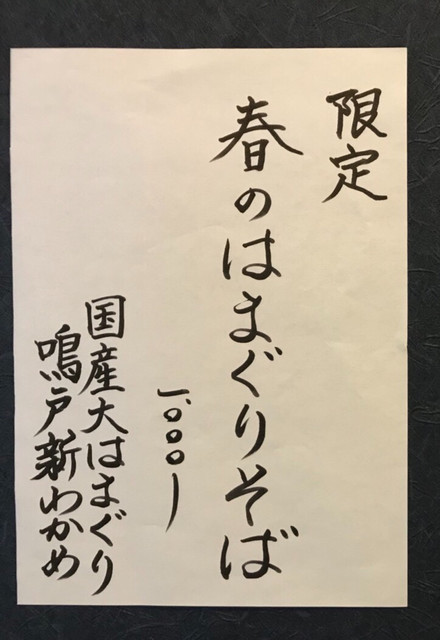 限定
春のはまぐりそば
一、〇〇〇ー
国産大はまぐり
鳴戸新わかめ